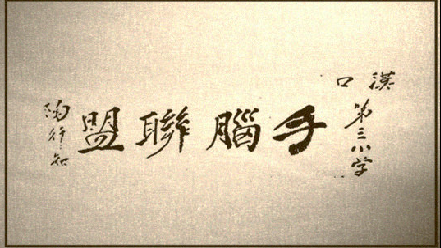 漢口
第三小学
手腦聯盟
陶行知